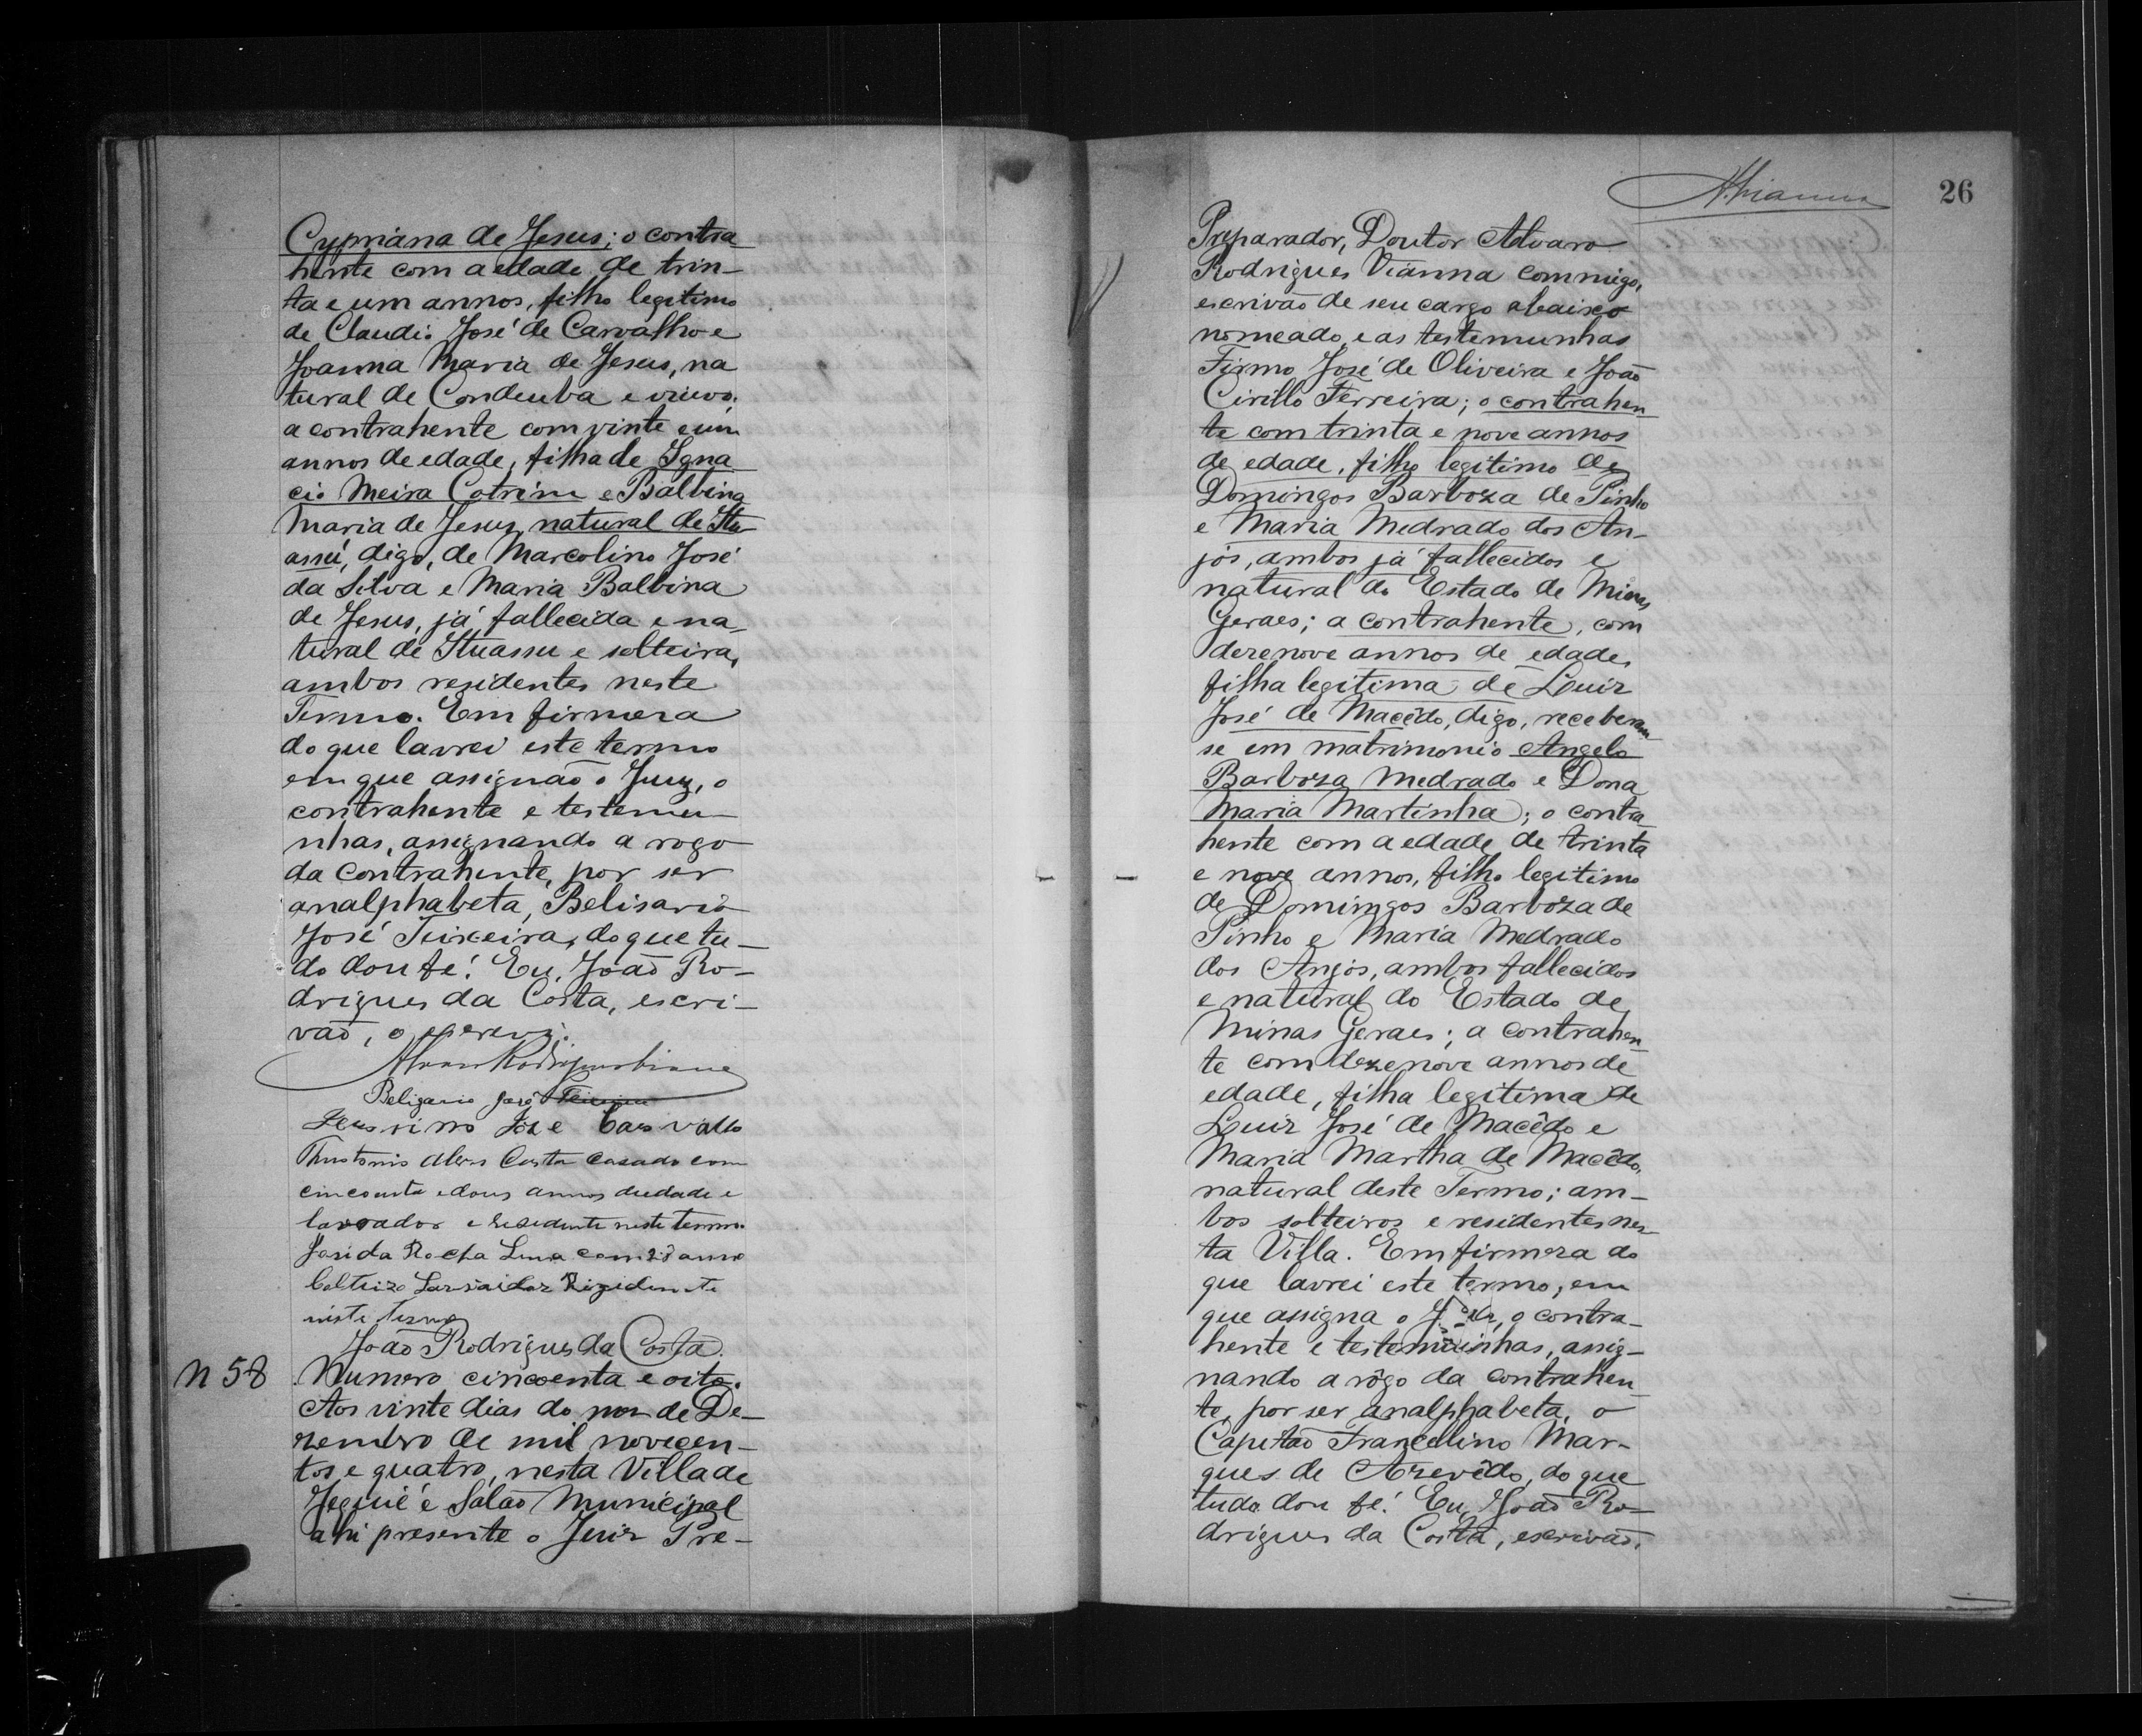 Cypriana de Jesus; o contra
hente com a edade de trin-
ta e um annos, filho legitimo
de Claudio José de Carvalho e
Joanna Maria de Jesus, na
tural de Condeuba e viuvo;
a contrahente com vinte e um
annos de edade, filha de Igna
cio Meira Cotrim e Balbina
Maria de Jesus, natural de Itu
assú, digo, de Marcolino José
da Silva e Maria Balbina
de Jesus, já fallecida e na-
tural de Ituassu e solteira,
ambos residentes neste
Termo. Em firmeza
do que lavrei este termo
em que assignão o Juiz, o
contrahente e testemu-
nhas, assignando a rogo
da contrahente, por ser
analphabeta, Belisario
José Teixeira, do que tu-
do dou fé. Eu, João Ro-
drigues da Costa, escri-
vão, o escrevi.
Alvaro Rodrigues Vianna
Belizario José Teixeira
José Carvalho
Alves Costa casado com
cincoenta e dous annos dedade e
lavrador e residente neste termo.
José da Rocha Lima com 28 anno
Rezidente
neste Termo
João Rodrigues da Costa.
N 58
Numero cincoenta e oito.
Aos vinte dias do mez de De-
zembro de mil novecen-
tos e quatro, nesta Villa de
Jequié e Salão Municipal
ahi presente o Juiz Pre-
AVianna
26
Preparador, Doutor Alvaro
Rodrigues Vianna commigo,
escrivão de seu cargo abaixo
nomeado, e as testemunhas
Firmo José de Oliveira e João
Cirillo Ferreira; o contrahen
te com trinta e nove annos
de edade, filho legitimo de
Domingos Barboza de Pinho
e Maria Medrado dos An-
jos, ambos já fallecidos e
natural do Estado de Minas
Geraes; a contrahente, com
dezenove annos de edade,
filha legitima de Luiz
José de Macêdo, digo, receberam
se em matrimonio Angelo
Barboza Medrado e Dona
Maria Martinha; o contra-
hente com a edade de trinta
e nove annos, filho legitimo
de Domingos Barboza de
Pinho e Maria Medrado
dos Anjos, ambos fallecidos
e natural do Estado de
Minas Geraes; a contrahen
te com dezenove annos de
edade, filha legitima de
Luiz José de Macêdo e
Maria Martha de Macêdo,
natural deste Termo; am-
bos solteiros e residentes nes
ta Villa. Em firmeza do
que lavrei este termo, em
que assigna o Juiz, o contra-
hente e testemunhas, assig-
nando a rôgo da contrahen
te, por ser analphabeta, o
Capitão Francelino Mar-
ques de Azevêdo, do que
tudo dou fé. Eu, João Ro-
drigues da Costa, escrivão,